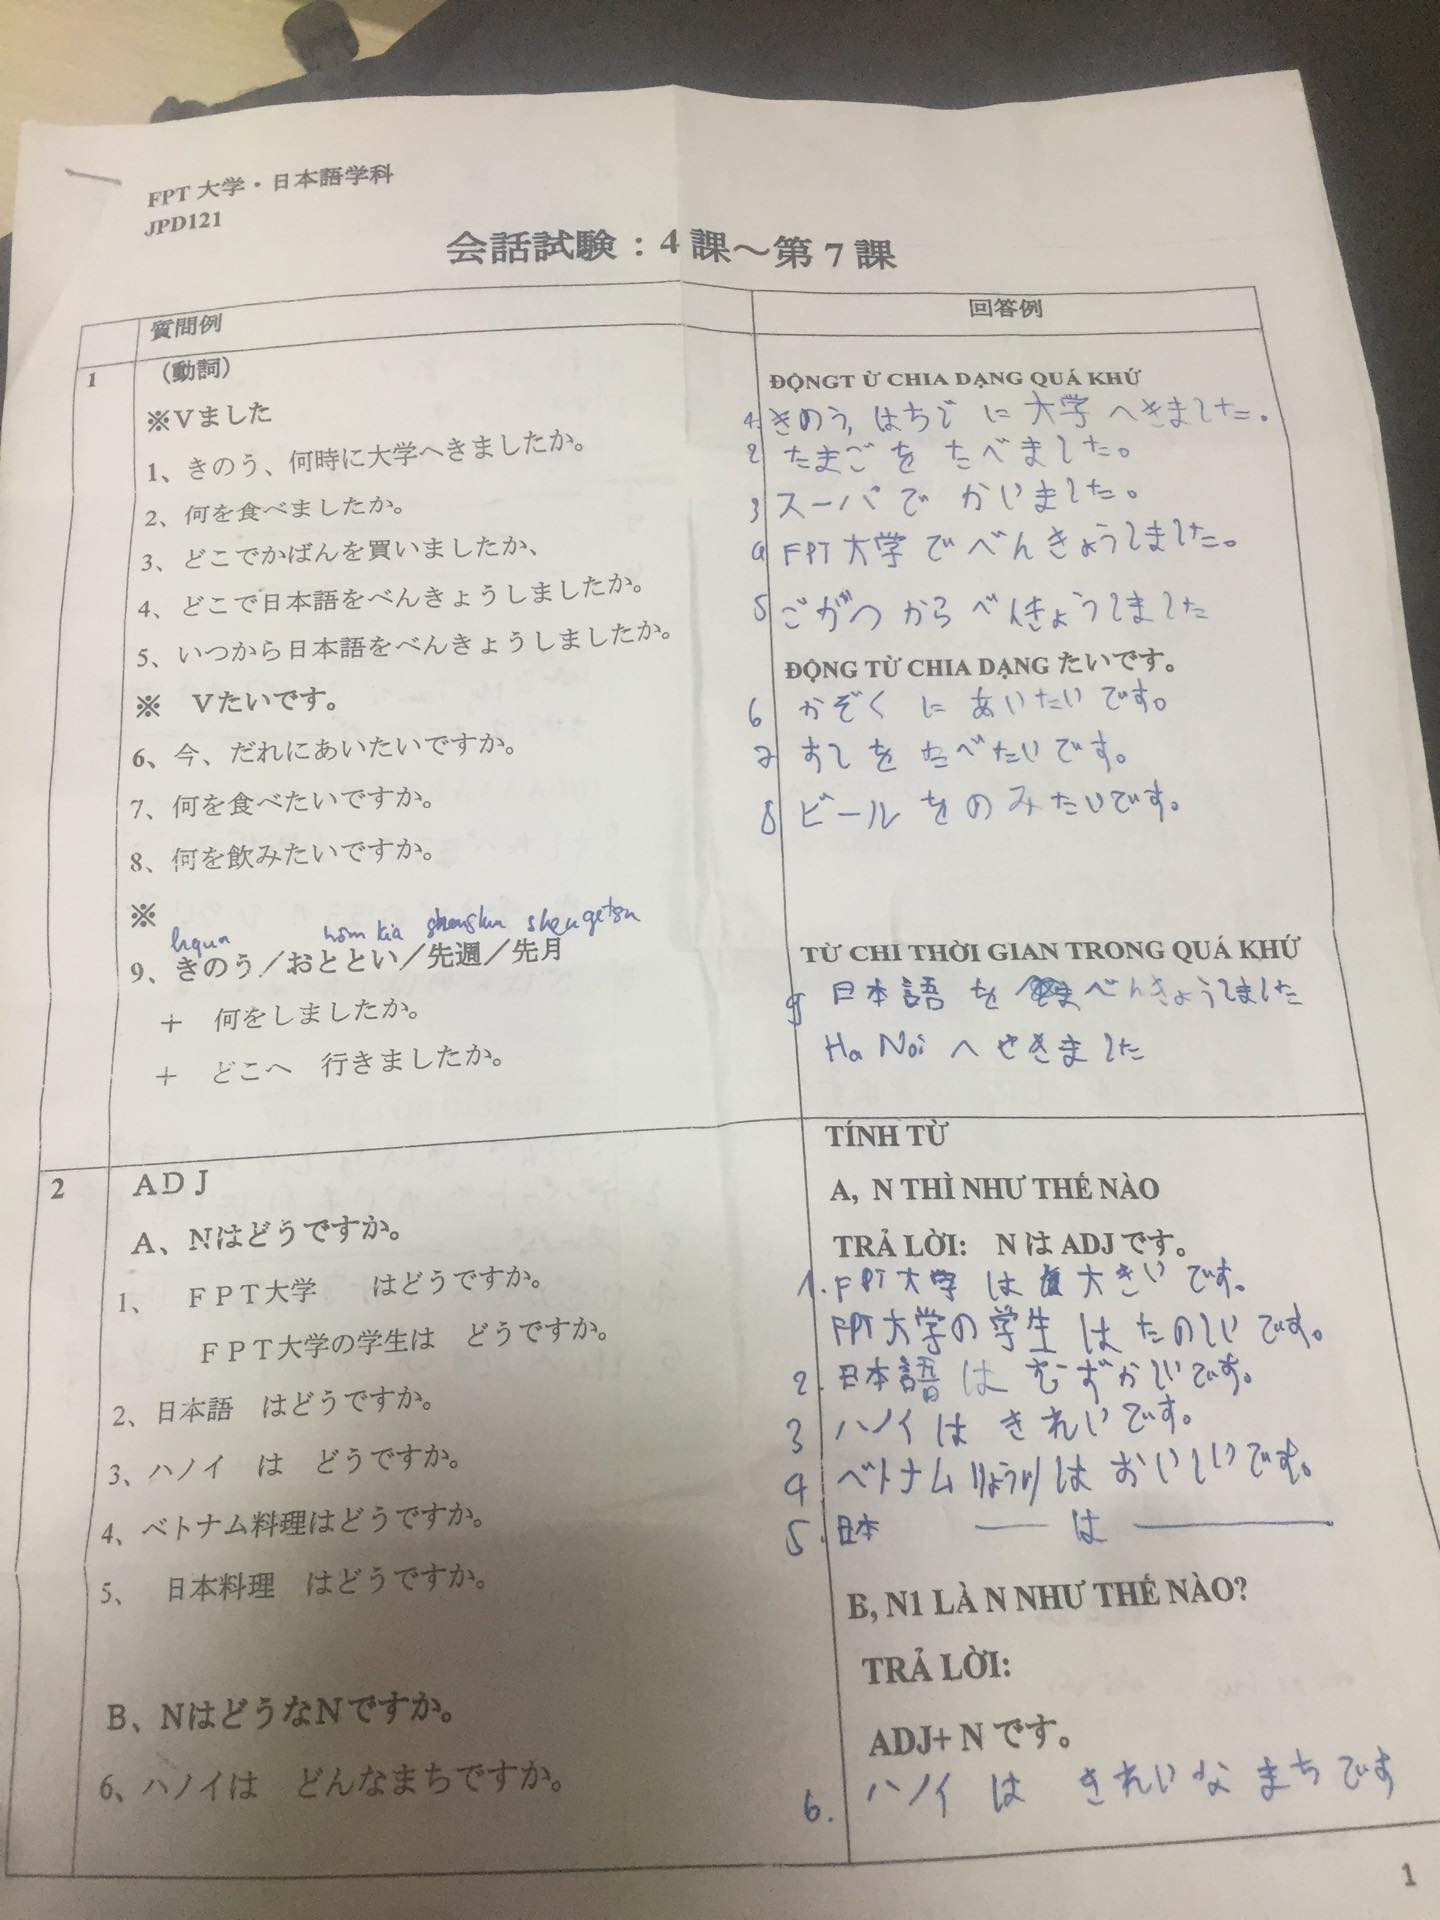 FPT 大学・日本語学科
JPD121
会話試験：４課～第７課
質問例
回答例
1
（動詞）
※Ｖました
1、きのう、何時に大学へきましたか。
2、何を食べましたか。
3、どこでかばんを買いましたか、
4、どこで日本語をべんきょうしましたか。
5、いつから日本語をべんきょうしましたか。
※　Ｖたいです。
6、今、だれにあいたいですか。
7、何を食べたいですか。
8、何を飲みたいですか。
※
hqua hôm kia shenshu shengetsu
9、きのう／おととい／先週／先月
＋　何をしましたか。
＋　どこへ　行きましたか。
ĐỘNGT Ừ CHIA DẠNG QUÁ KHỨ
1. きのう, はちじ に 大学 へきました.
2 たまご を たべました。
3 スーパで かいました。
4 FPT 大学 で べんきょうしました。
5 ごがつ から べんきょうしました
ĐỘNG TỪ CHIA DẠNG たいです。
6 かぞく に あいたいです。
7 すしを たべたいです。
8 ビール を のみたいです。
TỪ CHI THỜI GIAN TRONG QUÁ KHỨ
9 日本語 を べんきょうしました
Ha Noi へ きました
2
ＡＤＪ
Ａ、Ｎはどうですか。
1、　ＦＰＴ大学　　はどうですか。
ＦＰＴ大学の学生は　どうですか。
2、日本語　はどうですか。
3、ハノイ　は　どうですか。
4、ベトナム料理はどうですか。
5、　日本料理　はどうですか。
B、NはどうなNですか。
6、ハノイは　どんなまちですか。
TÍNH TỪ
A, N THÌ NHƯ THẾ NÀO
TRẢ LỜI: N は ADJ です。
1. FPT 大学 は 大きい です。
FPT大学の 学生 は たのしい です。
2. 日本語 は むずかしいです。
3 ハノイ は きれいです。
4 ベトナム りょうり は おいしいです。
5. 日本 — は —
B, N1 LÀ N NHƯ THẾ NÀO?
TRẢ LỜI:
ADJ+ N です。
6. ハノイ は きれいな まち です
1